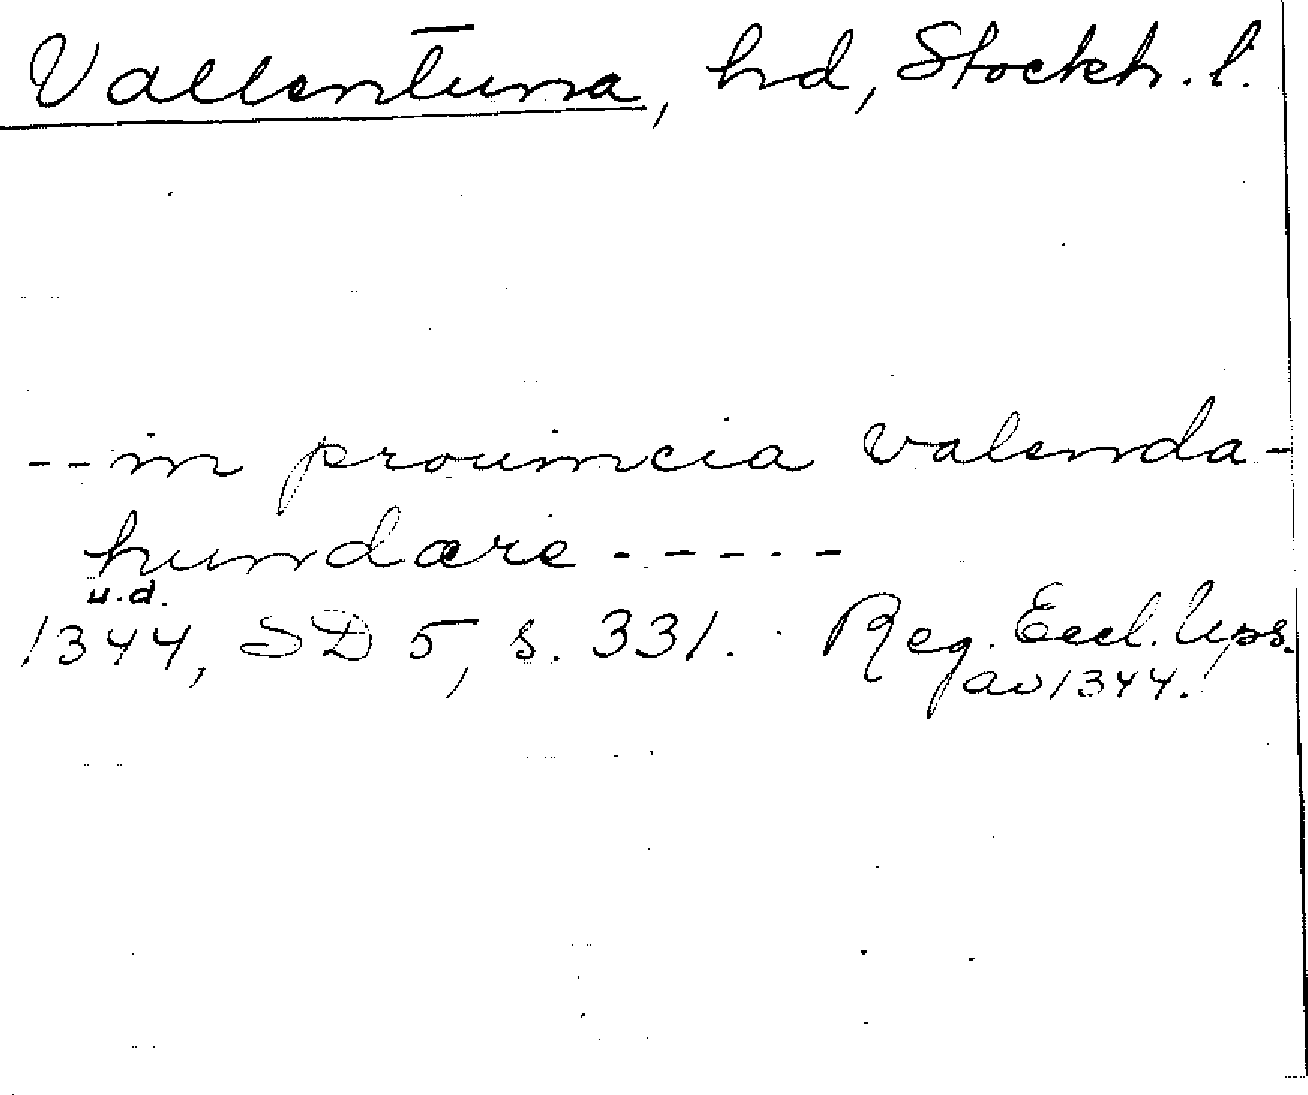 Vallentuna, hd, Stockh. l.
-- in prouincia valenda-
hundære -----
u.d.
1344, SD 5, s. 331. Reg. Eccl. Ups.
av 1344.